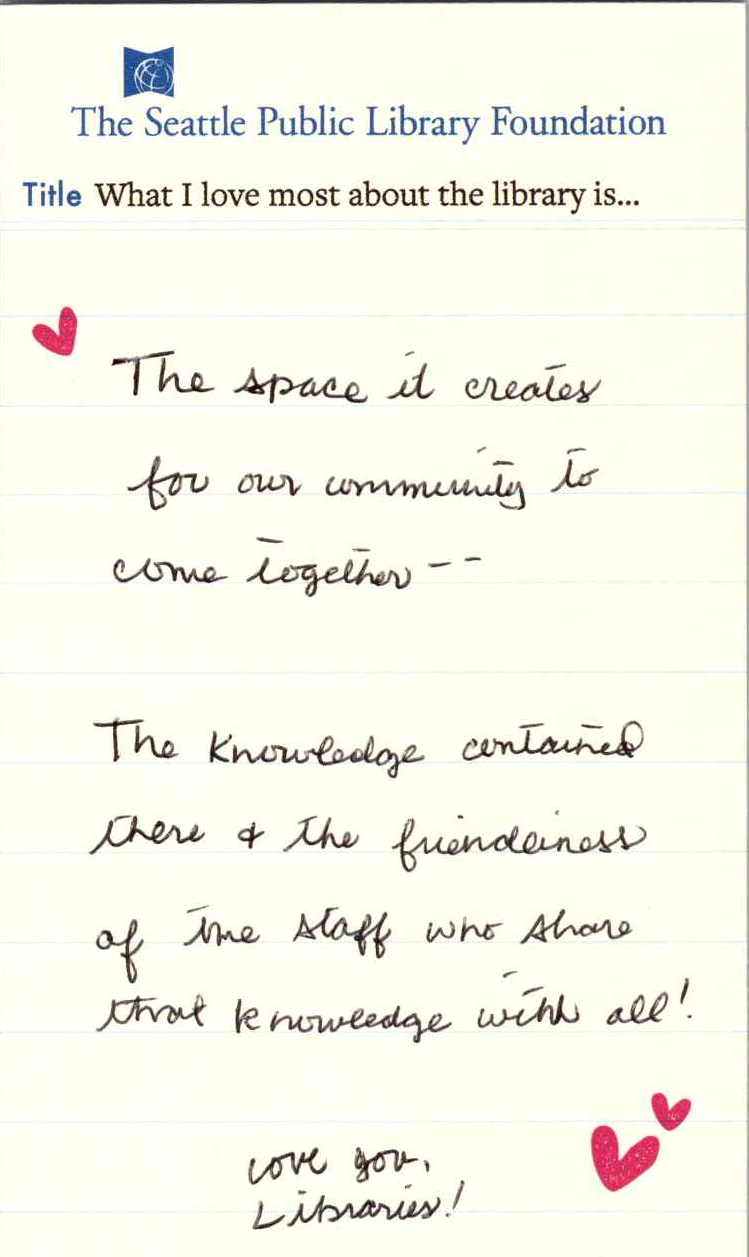 The Seattle Public Library Foundation
Title What I love most about the library is...
The space it creates
for our community to
come together--
The knowledge contained
there & the friendliness
of the staff who share
that knowledge with all!
Love you,
Libraries!